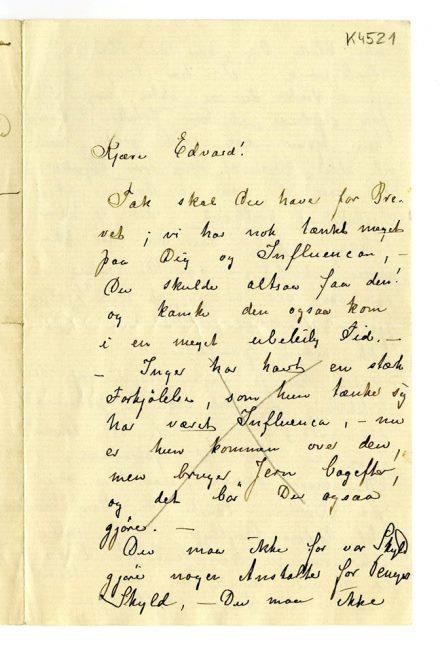 K4521
Kjære Edvard!
Tak skal Du have for Bre-
vet; vi har nok tænkt meget
paa Dig og Influencaen, –
Du skulde altsaa faa den!
og kanske den ogsaa kom
i en meget ubeleilig Tid. –
– Inger har havt en stærk
Forkjølelse, som hun tænker sig
har været Influenca, – nu
er hun kommen over den,
men bruger Jern bagefter,
og det bør Du ogsaa
gjøre. –
Du maa ikke for vor Skyld
gjøre nogen Anstalter for Penges
Skyld, – Du maa ikke